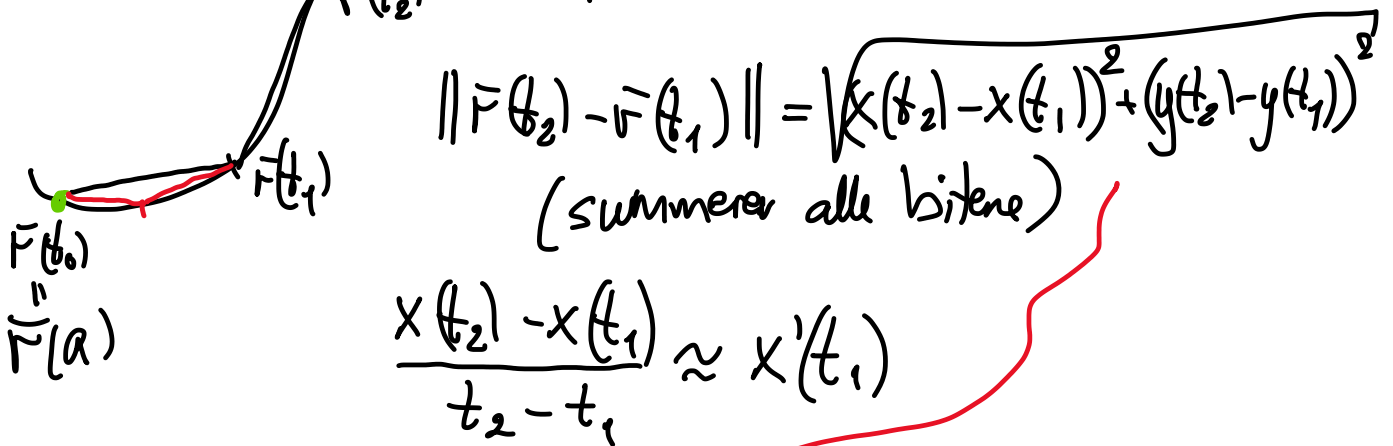 r̄(t₂)
‖r̄(t₂) - r̄(t₁)‖ = √((x(t₂) - x(t₁))² + (y(t₂) - y(t₁))²)
r̄(t₁)
(summerer alle bitene)
r̄(t₀)
=
r̄(a)
(x(t₂) - x(t₁))/(t₂ - t₁) ≈ x'(t₁)